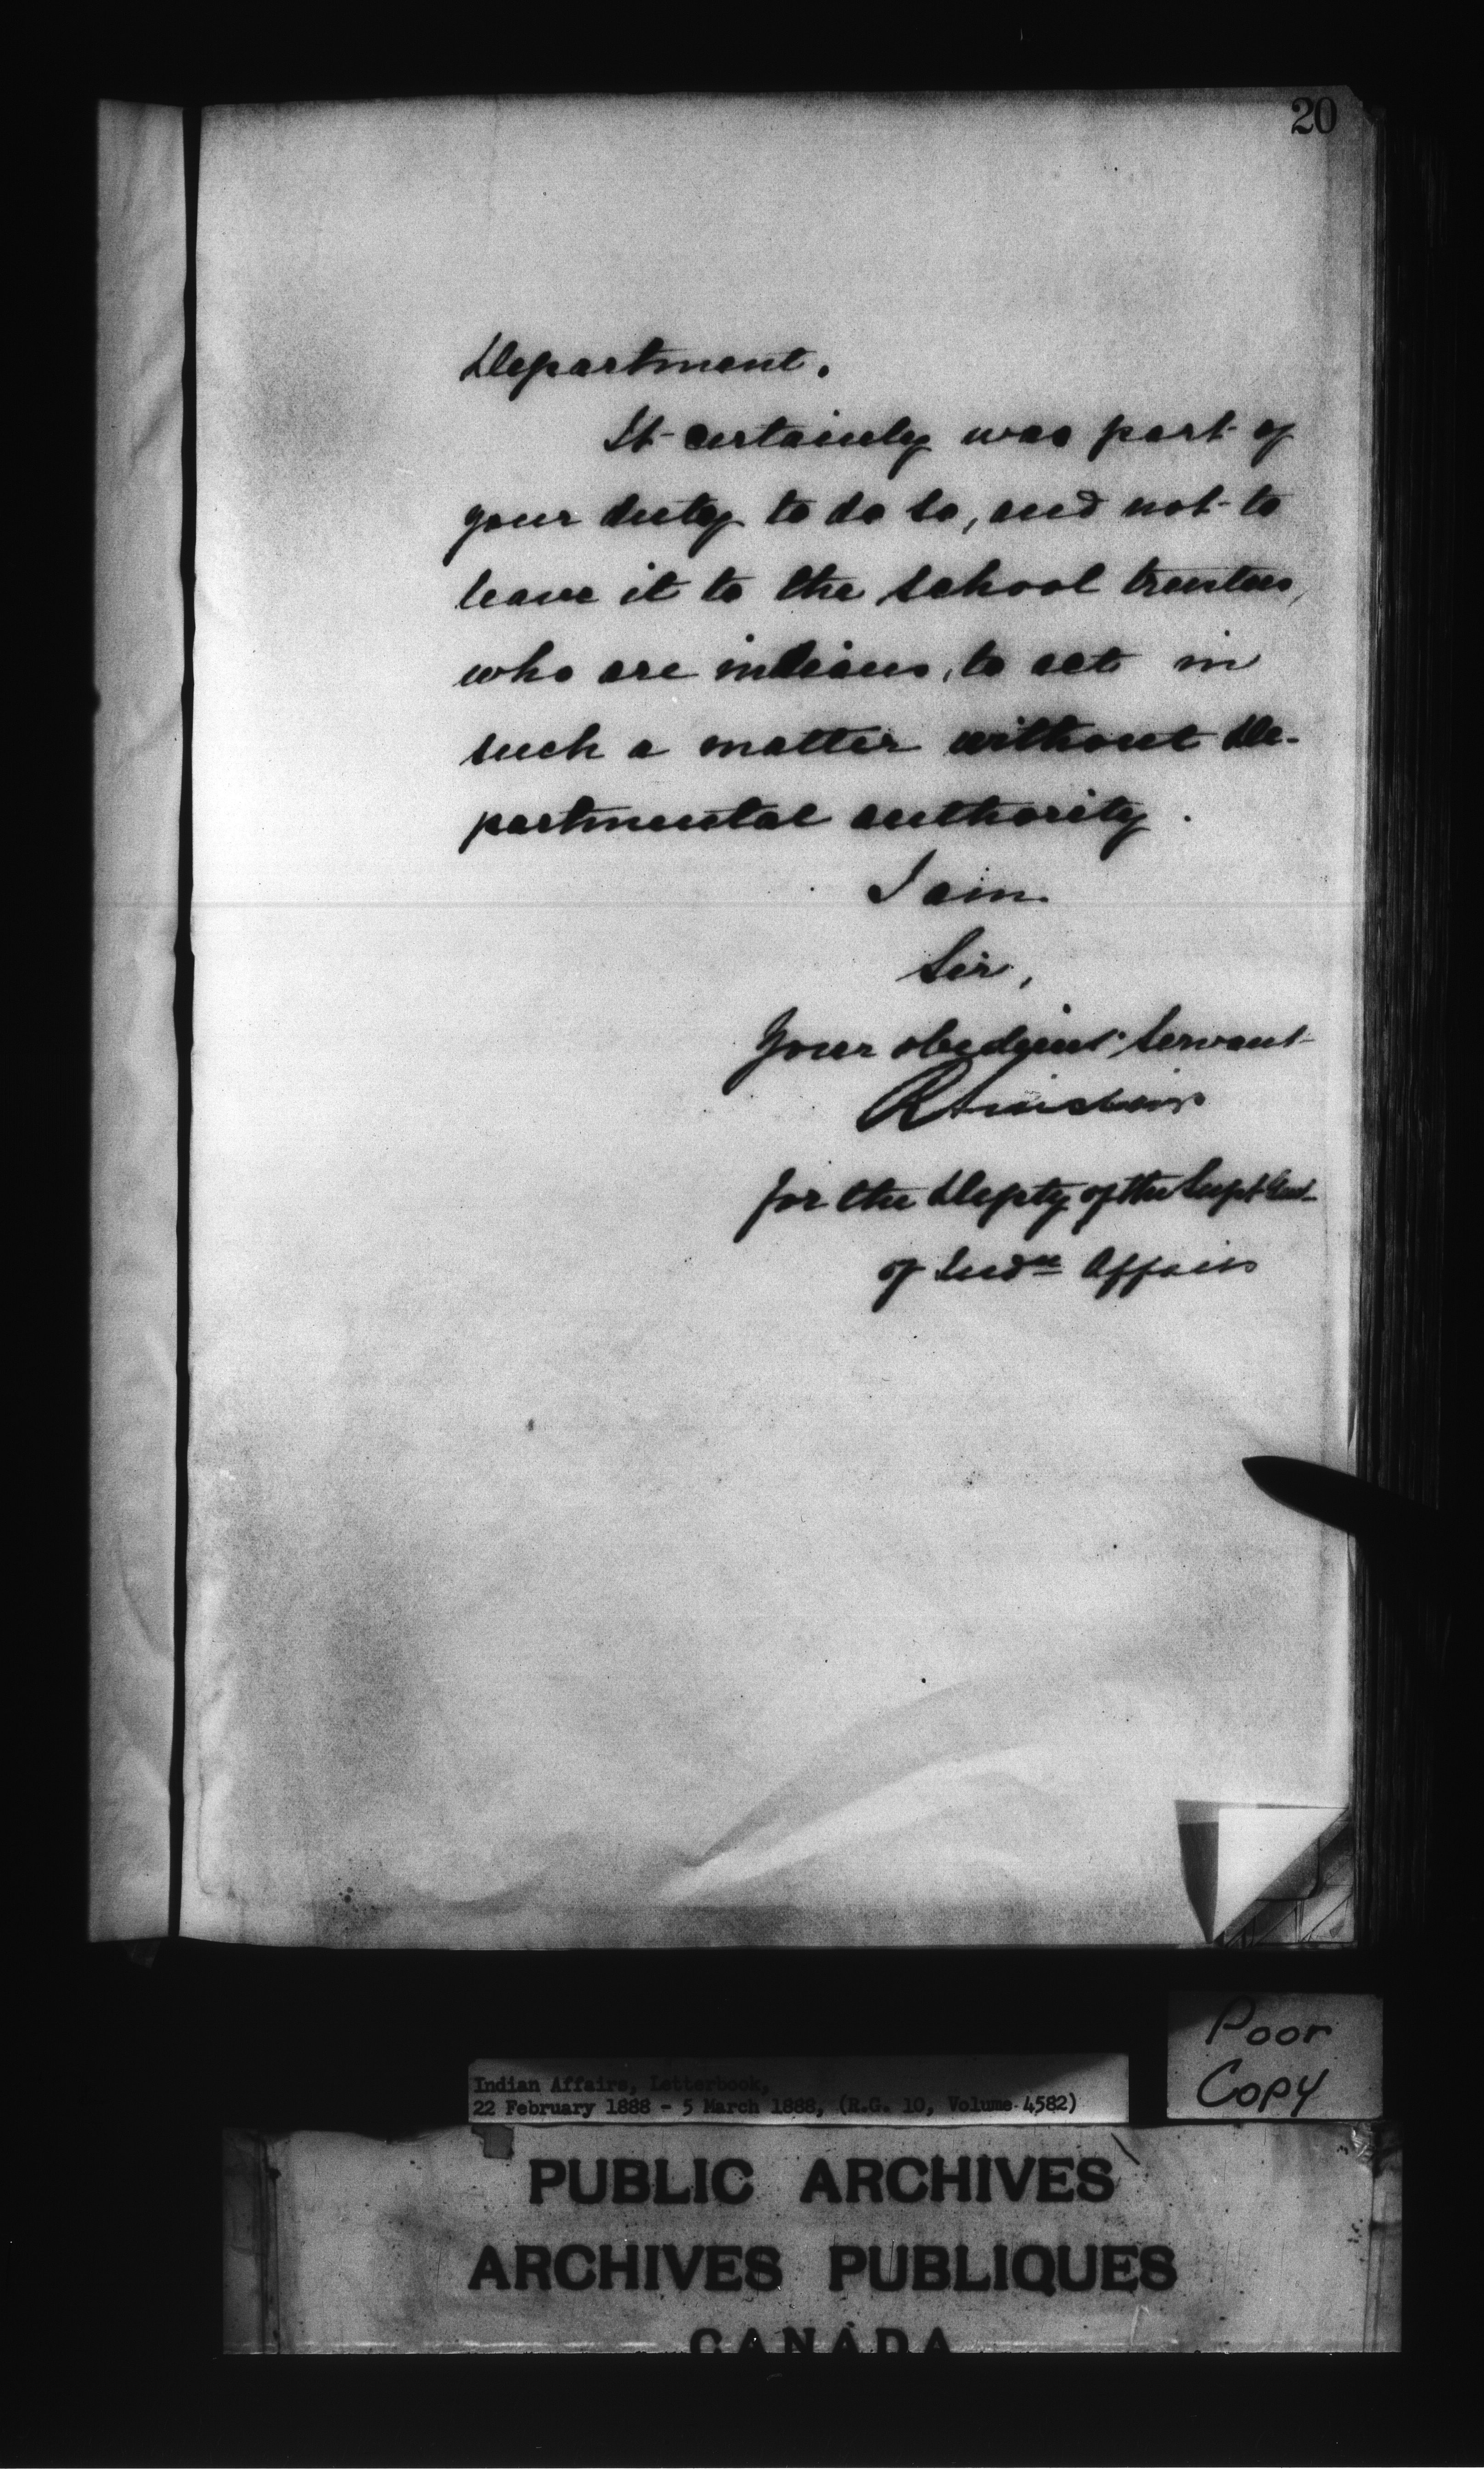 20
Department.
It certainly was part of
your duty to do so, and not to
leave it to the school trustees,
who are indians, to act in
such a matter without De-
partmental authority.
I am
Sir,
Your obedient Servant
R Sinclair
for the Depty of the Supt Genl
of Indn Affairs
Poor
Copy
Indian Affairs, Letterbook,
22 February 1888 - 5 March 1888, (R.G. 10, Volume 4582)
PUBLIC ARCHIVES
ARCHIVES PUBLIQUES
CANADA